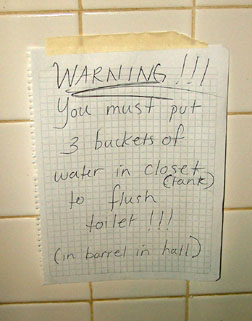 WARNING!!!
You must put
3 buckets of
water in closet
(tank)
to flush
toilet!!!
(in barrel in hall)